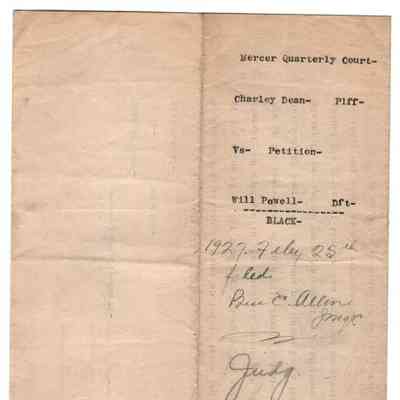 Mercer Quarterly Court-
Charley Dean- Plff-
Vs- Petition-
Will Powell- Dft-
BLACK-
1927. Feby 25th
filed
Ben C. Allin
Judg